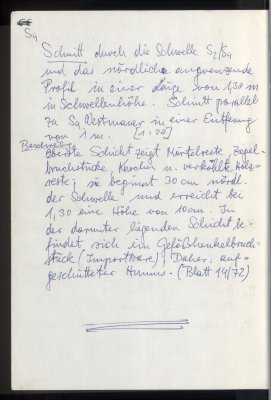 S4
Schnitt durch die Schwelle S2/S4
und das nördliche angrenzende
Profil in einer Länge von 1,30 m
in Schwellenhöhe. Schnitt parallel
zu S4 Westmauer in einer Entfernung
von 1 m. [1:20]
Beschreibung
Oberste Schicht zeigt Mörtelreste, Ziegel-
bruchstücke, Knochen u. verkohlte Holz-
reste; sie beginnt 30 cm nördl.
der Schwelle und erreicht bei
1,30 eine Höhe von 10 cm. In
der darunter liegenden Schicht be-
findet sich ein Gefäßhenkelbruch-
stück (Importware). Daher: auf-
geschütteter Humus. (Blatt 14/72)